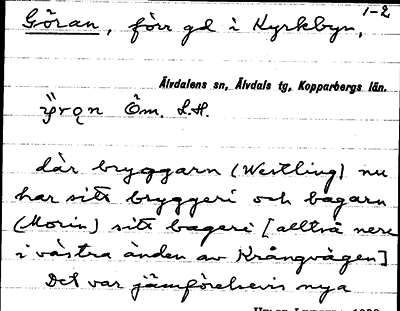 Göran, förr gd i Kyrkbyn, 1-2
Älvdalens sn, Älvdals tg, Kopparbergs län.
Öm. L.H.
där bryggarn (Westling) nu
har sitt bryggeri och bagarn
(Morin) sitt bageri [alltså nere
i västra änden av Krångvägen]
Det var jämförelsevis nya